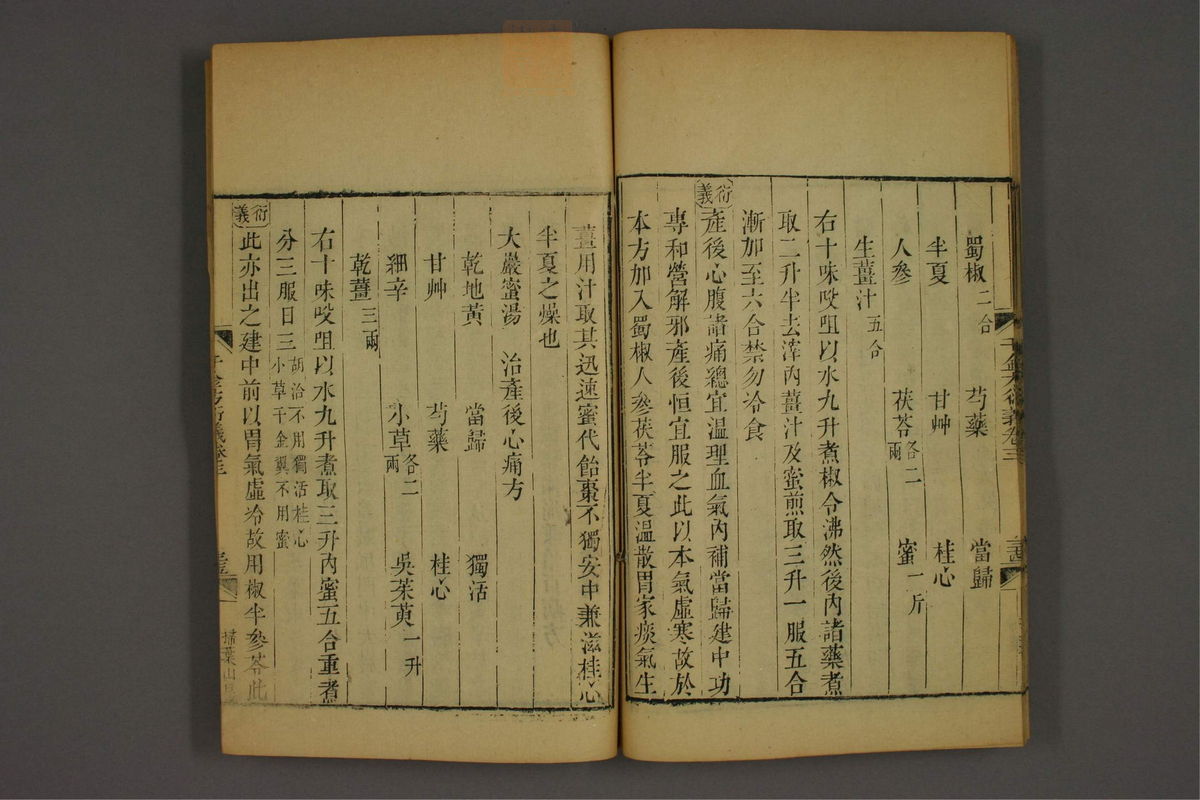 蜀椒二合 芍藥 當歸
半夏 甘艸 桂心
人參 茯苓各二兩 蜜一斤
生薑汁五合
右十味㕮咀以水九升煮椒令沸然後內諸藥煮
取二升半去滓內薑汁及蜜煎取三升一服五合
漸加至六合禁勿冷食
衍義產後心腹諸痛總宜溫理血氣內補當歸建中功
專和營解邪產後恒宜服之此以本氣虛寒故於
本方加入蜀椒人參茯苓半夏溫散胃家痰氣生
薑用汁取其迅速蜜代飴棗不獨安中兼滋桂心
半夏之燥也
大巖蜜湯 治產後心痛方
乾地黃 當歸 獨活
甘艸 芍藥 桂心
細辛 小草各二兩 吳茱萸一升
乾薑三兩
右十味㕮咀以水九升煮取三升內蜜五合重煮
分三服日三胡洽不用獨活桂心
小草千金翼不用蜜
衍義此亦出之建中前以胃氣虛冷故用椒半參苓此
千金方衍義卷三
掃葉山房